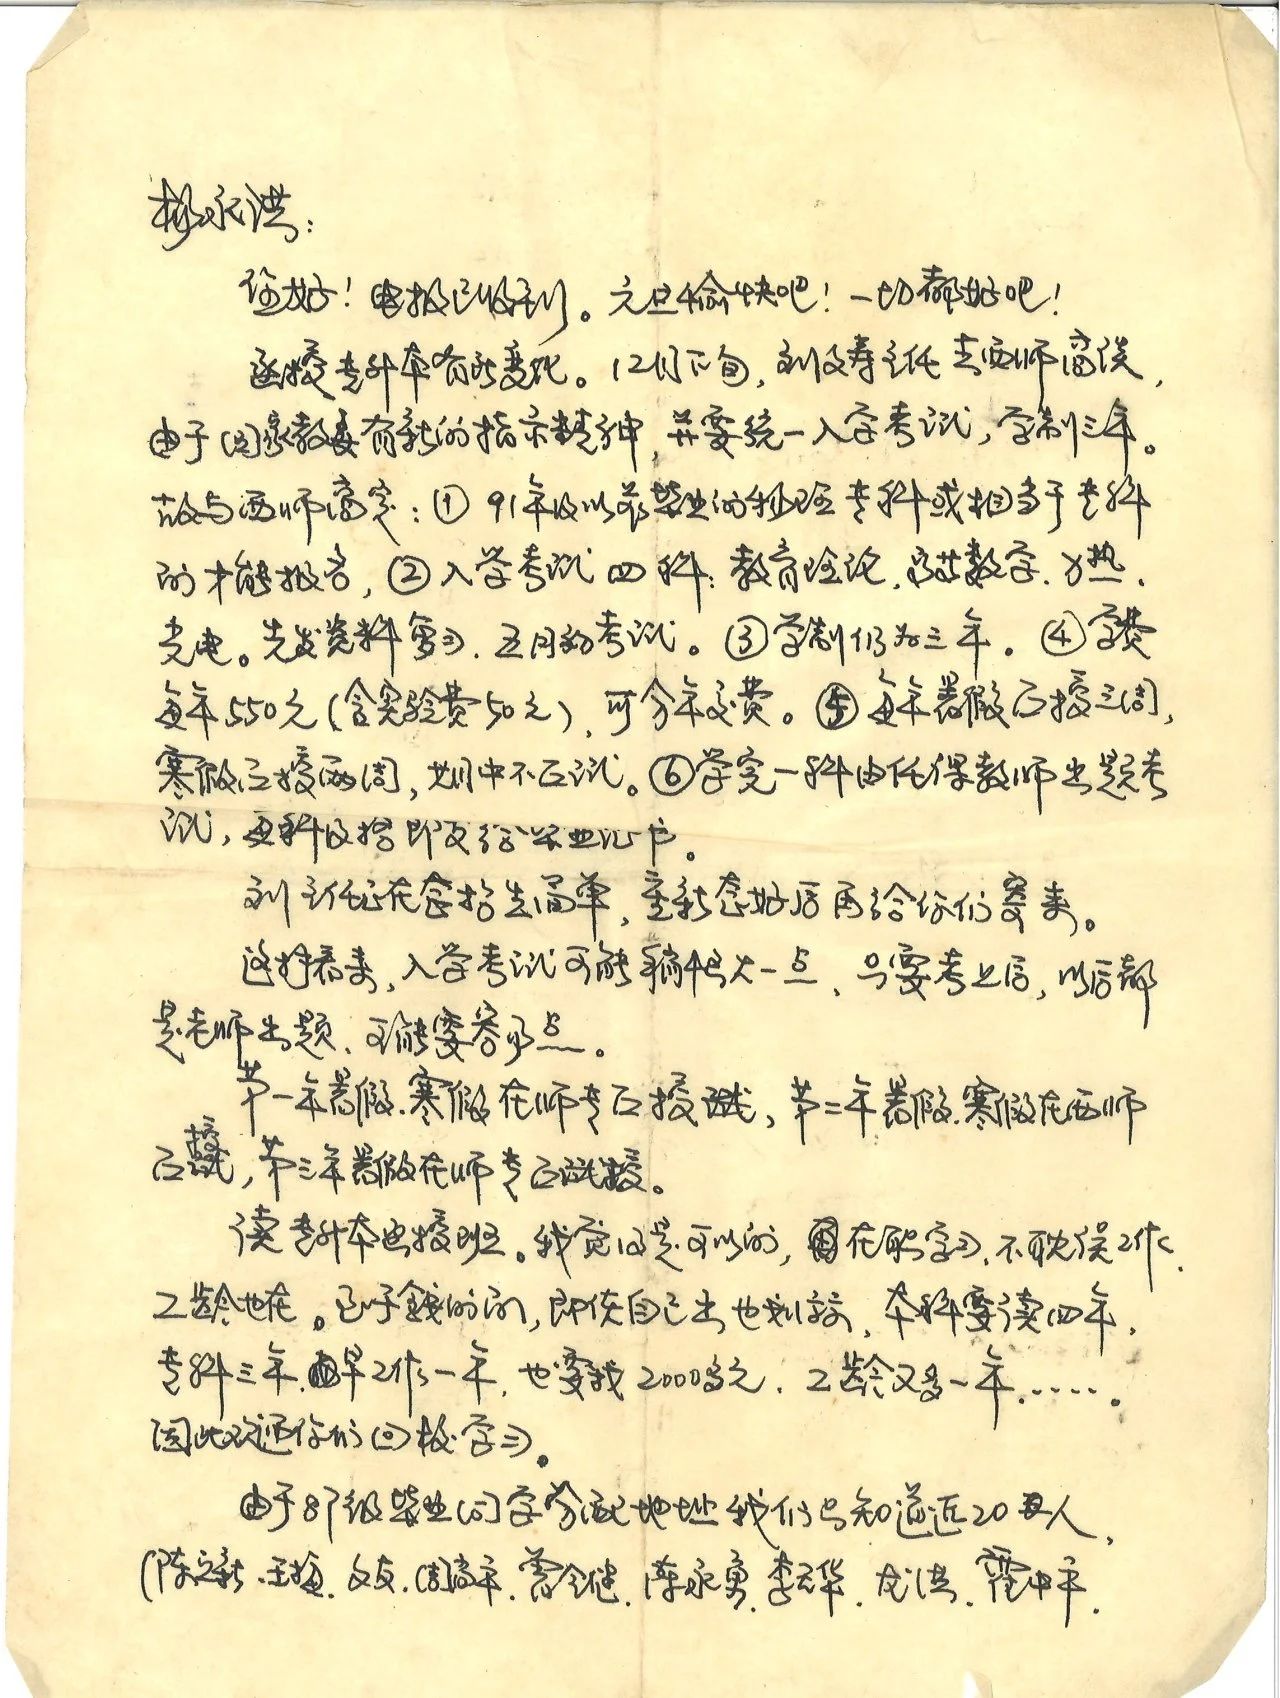 杨永洪：
您好！电报已收到。元旦愉快吧！一切都好吧！
函授专升本有所变化。12月下旬，刘主任去西师商谈，
由于国家教委有新的指示精神，并要统一入学考试，学制三年。
故与西师商定：① 91年及以前毕业的物理专科或相当于专科
的才能报名，② 入学考试四科：教育理论、高等数学、力热、
光电。先发资料复习、五月初考试。③学制仍为三年。④学费
每年550元（含实验费50元），可分年交费。⑤ 每年暑假面授三周，
寒假面授两周，期中不面试。⑥学完一科由任课教师出题考
试，每科及格即发给毕业证书。
刘主任正在拟招生简单，重新拟好后再给你们寄来。
这样看来，入学考试可能稍恼火一点、只要考上后，以后都
是老师出题、可能要容易点。
第一年暑假、寒假在师专面授，第二年暑假、寒假在西师
面授，第三年暑假在师专面授。
读专升本函授班。我觉得是可以的，在职学习、不耽误工作、
工龄也在。至于钱的问，即使自己出也划算、本科要读四年，
专科三年、早工作一年、也要找2000多元、工龄又多一年……。
因此欢迎你们回校学习。
由于87级毕业同学分配地址我们只知道近20人，
（陈立新、王梅、文友、周尚平、曾令健、陈永勇、李云华、龙洪、霍中平、